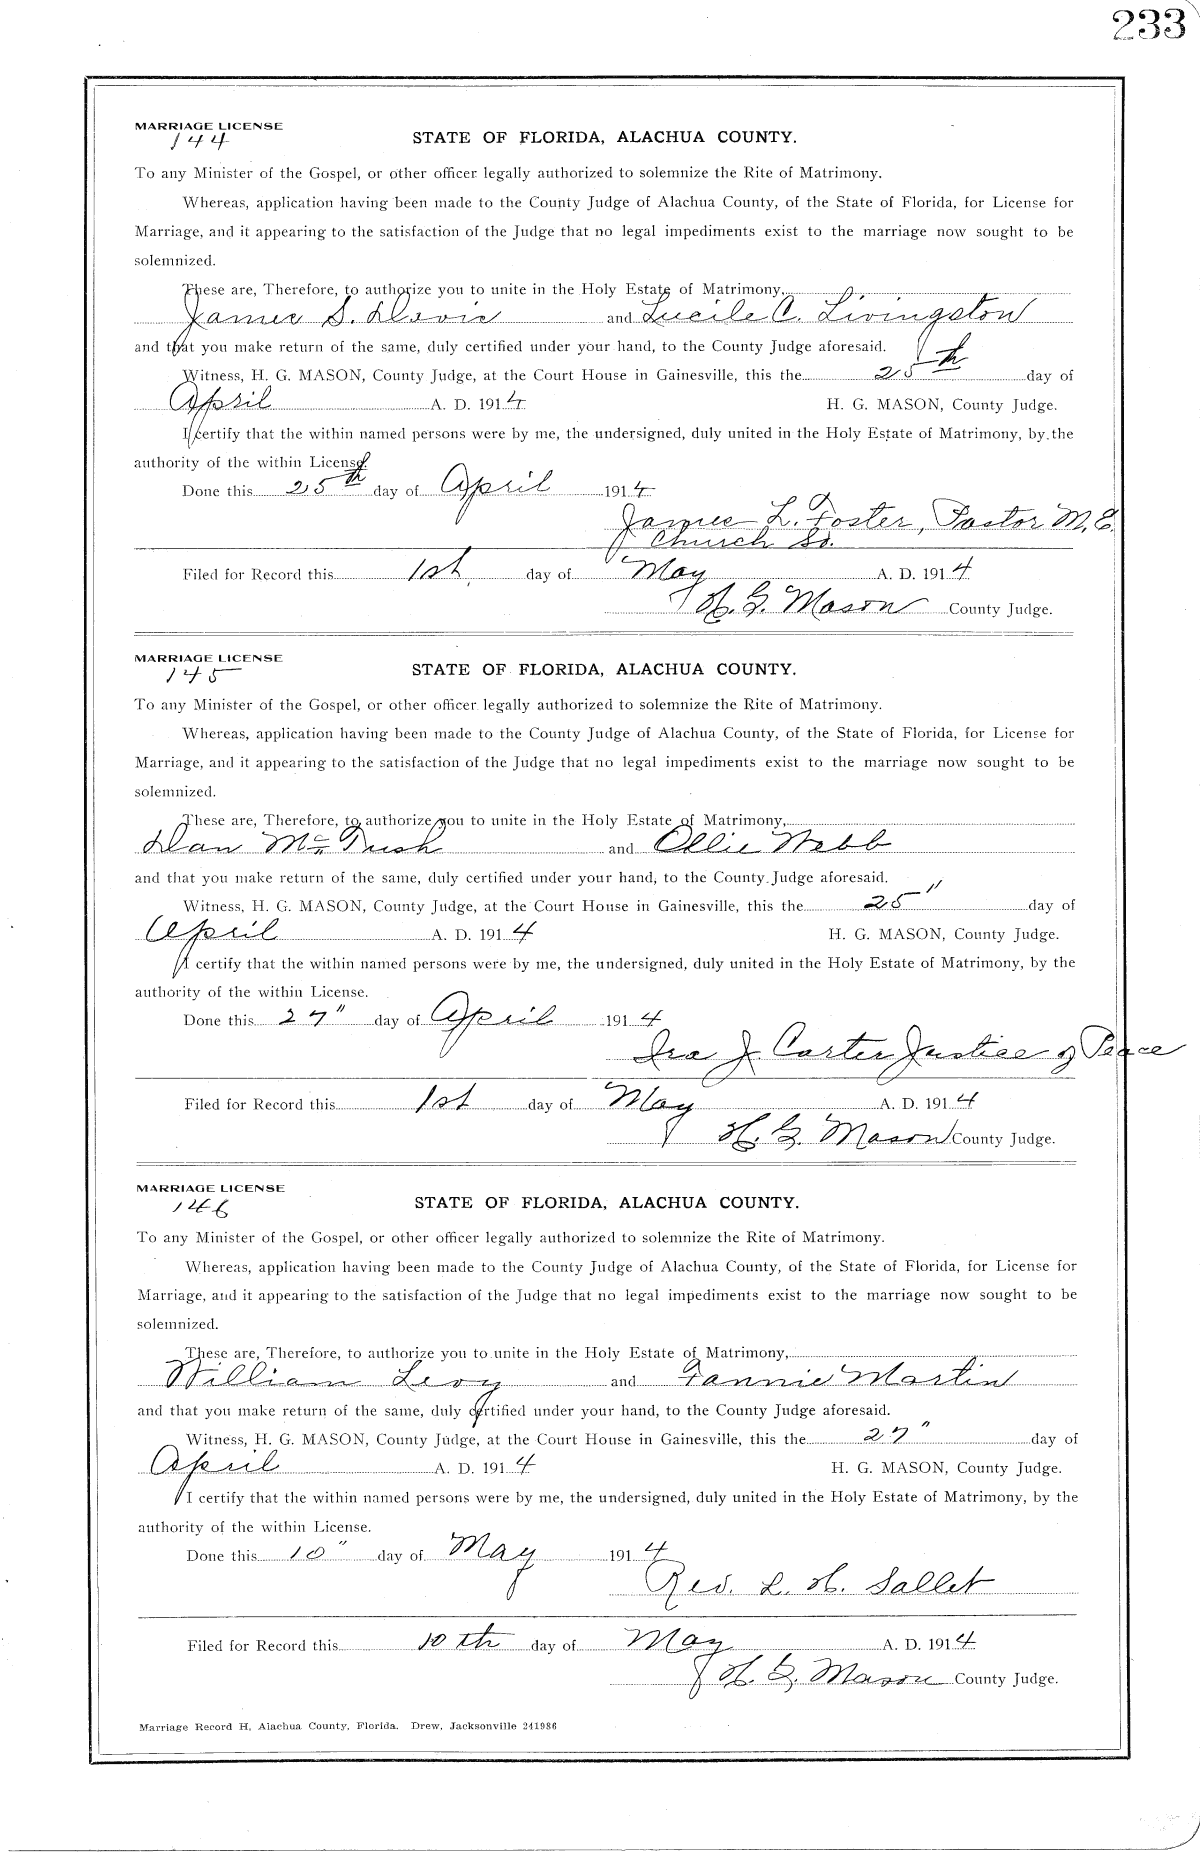 233
MARRIAGE LICENSE
144
STATE OF FLORIDA, ALACHUA COUNTY.
To any Minister of the Gospel, or other officer legally authorized to solemnize the Rite of Matrimony.
Whereas, application having been made to the County Judge of Alachua County, of the State of Florida, for License for
Marriage, and it appearing to the satisfaction of the Judge that no legal impediments exist to the marriage now sought to be
solemnized.
These are, Therefore, to authorize you to unite in the Holy Estate of Matrimony,
James S. Davis and Lucile C. Livingston
and that you make return of the same, duly certified under your hand, to the County Judge aforesaid.
Witness, H. G. MASON, County Judge, at the Court House in Gainesville, this the 25th day of
April A. D. 1914 H. G. MASON, County Judge.
I certify that the within named persons were by me, the undersigned, duly united in the Holy Estate of Matrimony, by the
authority of the within License.
Done this 25th day of April 1914
James L. Foster, Pastor M. E.
Church So.
Filed for Record this 1st day of May A. D. 1914
H. G. Mason County Judge.
MARRIAGE LICENSE
145
STATE OF FLORIDA, ALACHUA COUNTY.
To any Minister of the Gospel, or other officer legally authorized to solemnize the Rite of Matrimony.
Whereas, application having been made to the County Judge of Alachua County, of the State of Florida, for License for
Marriage, and it appearing to the satisfaction of the Judge that no legal impediments exist to the marriage now sought to be
solemnized.
These are, Therefore, to authorize you to unite in the Holy Estate of Matrimony,
Dan and Ollie Webb
and that you make return of the same, duly certified under your hand, to the County Judge aforesaid.
Witness, H. G. MASON, County Judge, at the Court House in Gainesville, this the 25" day of
April A. D. 1914 H. G. MASON, County Judge.
I certify that the within named persons were by me, the undersigned, duly united in the Holy Estate of Matrimony, by the
authority of the within License.
Done this 27" day of April 1914
Ira J. Carter Justice of Peace
Filed for Record this 1st day of May A. D. 1914
H. G. Mason County Judge.
MARRIAGE LICENSE
146
STATE OF FLORIDA, ALACHUA COUNTY.
To any Minister of the Gospel, or other officer legally authorized to solemnize the Rite of Matrimony.
Whereas, application having been made to the County Judge of Alachua County, of the State of Florida, for License for
Marriage, and it appearing to the satisfaction of the Judge that no legal impediments exist to the marriage now sought to be
solemnized.
These are, Therefore, to authorize you to unite in the Holy Estate of Matrimony,
William Levy and Fannie Martin
and that you make return of the same, duly certified under your hand, to the County Judge aforesaid.
Witness, H. G. MASON, County Judge, at the Court House in Gainesville, this the 27" day of
April A. D. 1914 H. G. MASON, County Judge.
I certify that the within named persons were by me, the undersigned, duly united in the Holy Estate of Matrimony, by the
authority of the within License.
Done this 10" day of May 1914
Rev. L. H. Sallet
Filed for Record this 10th day of May A. D. 1914
H. G. Mason County Judge.
Marriage Record H, Alachua County, Florida. Drew, Jacksonville 241986